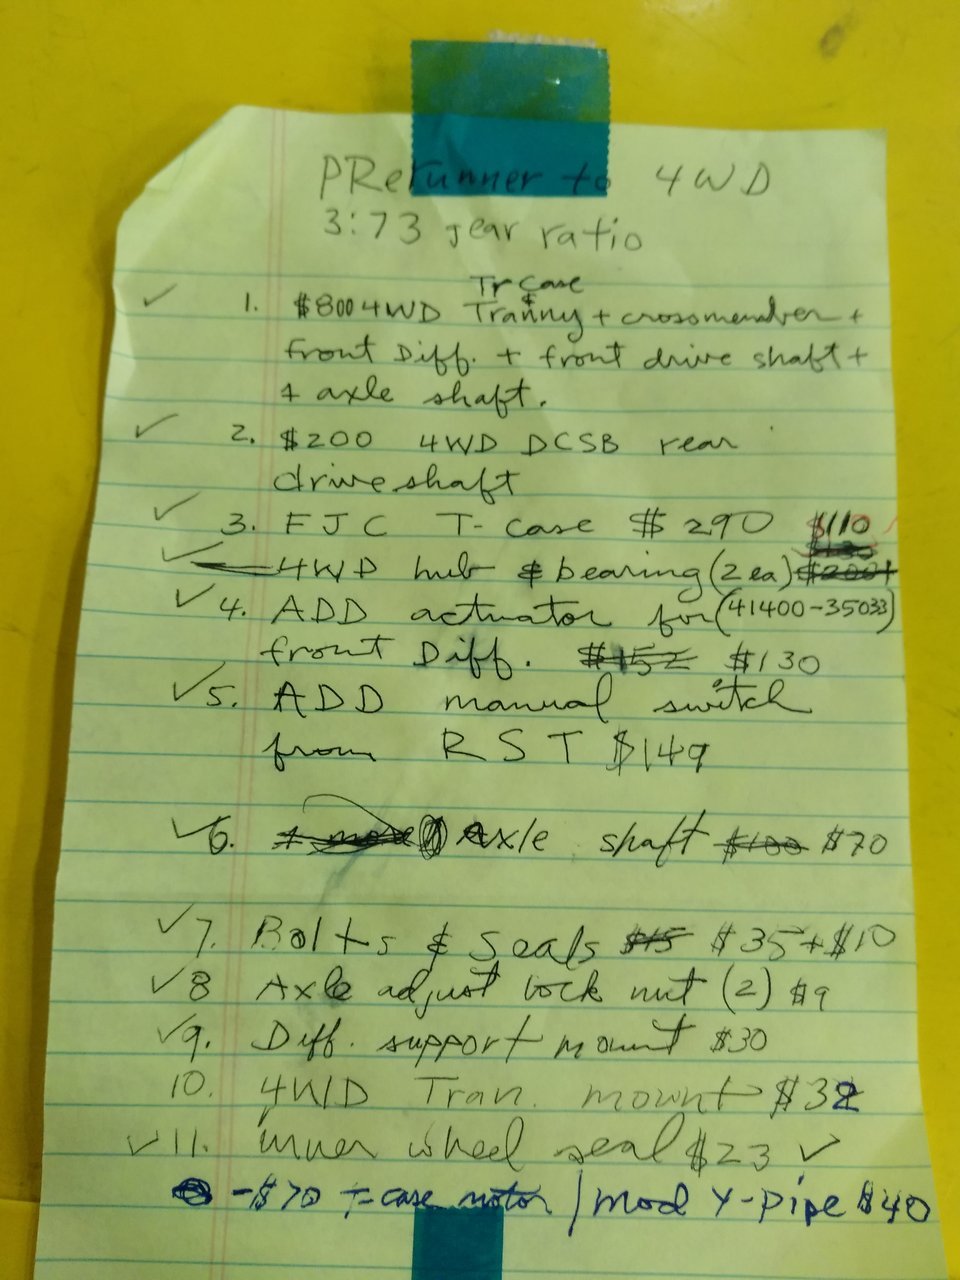 PRerunner to 4WD
3:73 gear ratio
Tr Case
1. $800 4WD Tranny & + crossmember +
front Diff. + front drive shaft +
1 axle shaft.
2. $200 4WD DCSB rear
driveshaft
3. FJC T-case $290 $110
4WD hub & bearing (2 ea) $200
4. ADD actuator for (41400-35033)
front Diff. $152 $130
5. ADD manual switch
from RST $149
6. 1 more Axle shaft $100 $70
7. Bolts & seals $15 $35+$10
8 Axle adjust lock nut (2) $9
9. Diff. support mount $30
10. 4WD Tran. mount $32
11. inner wheel seal $23
-$70 T-case motor / mod Y-pipe $40